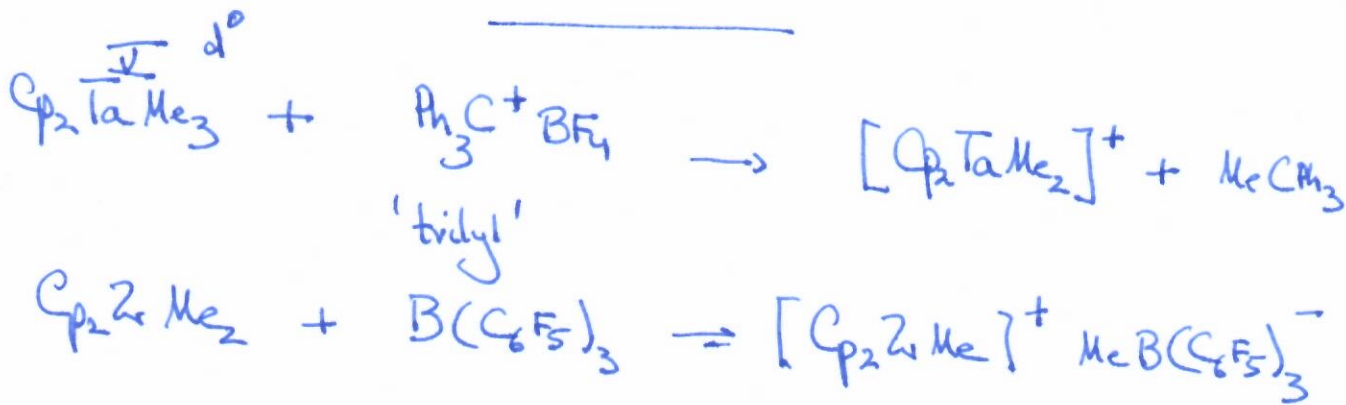 V d⁰
Cp₂TaMe₃ + Ph₃C⁺BF₄ → [Cp₂TaMe₂]⁺ + MeCPh₃
'trityl'
Cp₂ZrMe₂ + B(C₆F₅)₃ → [Cp₂ZrMe]⁺ MeB(C₆F₅)₃⁻